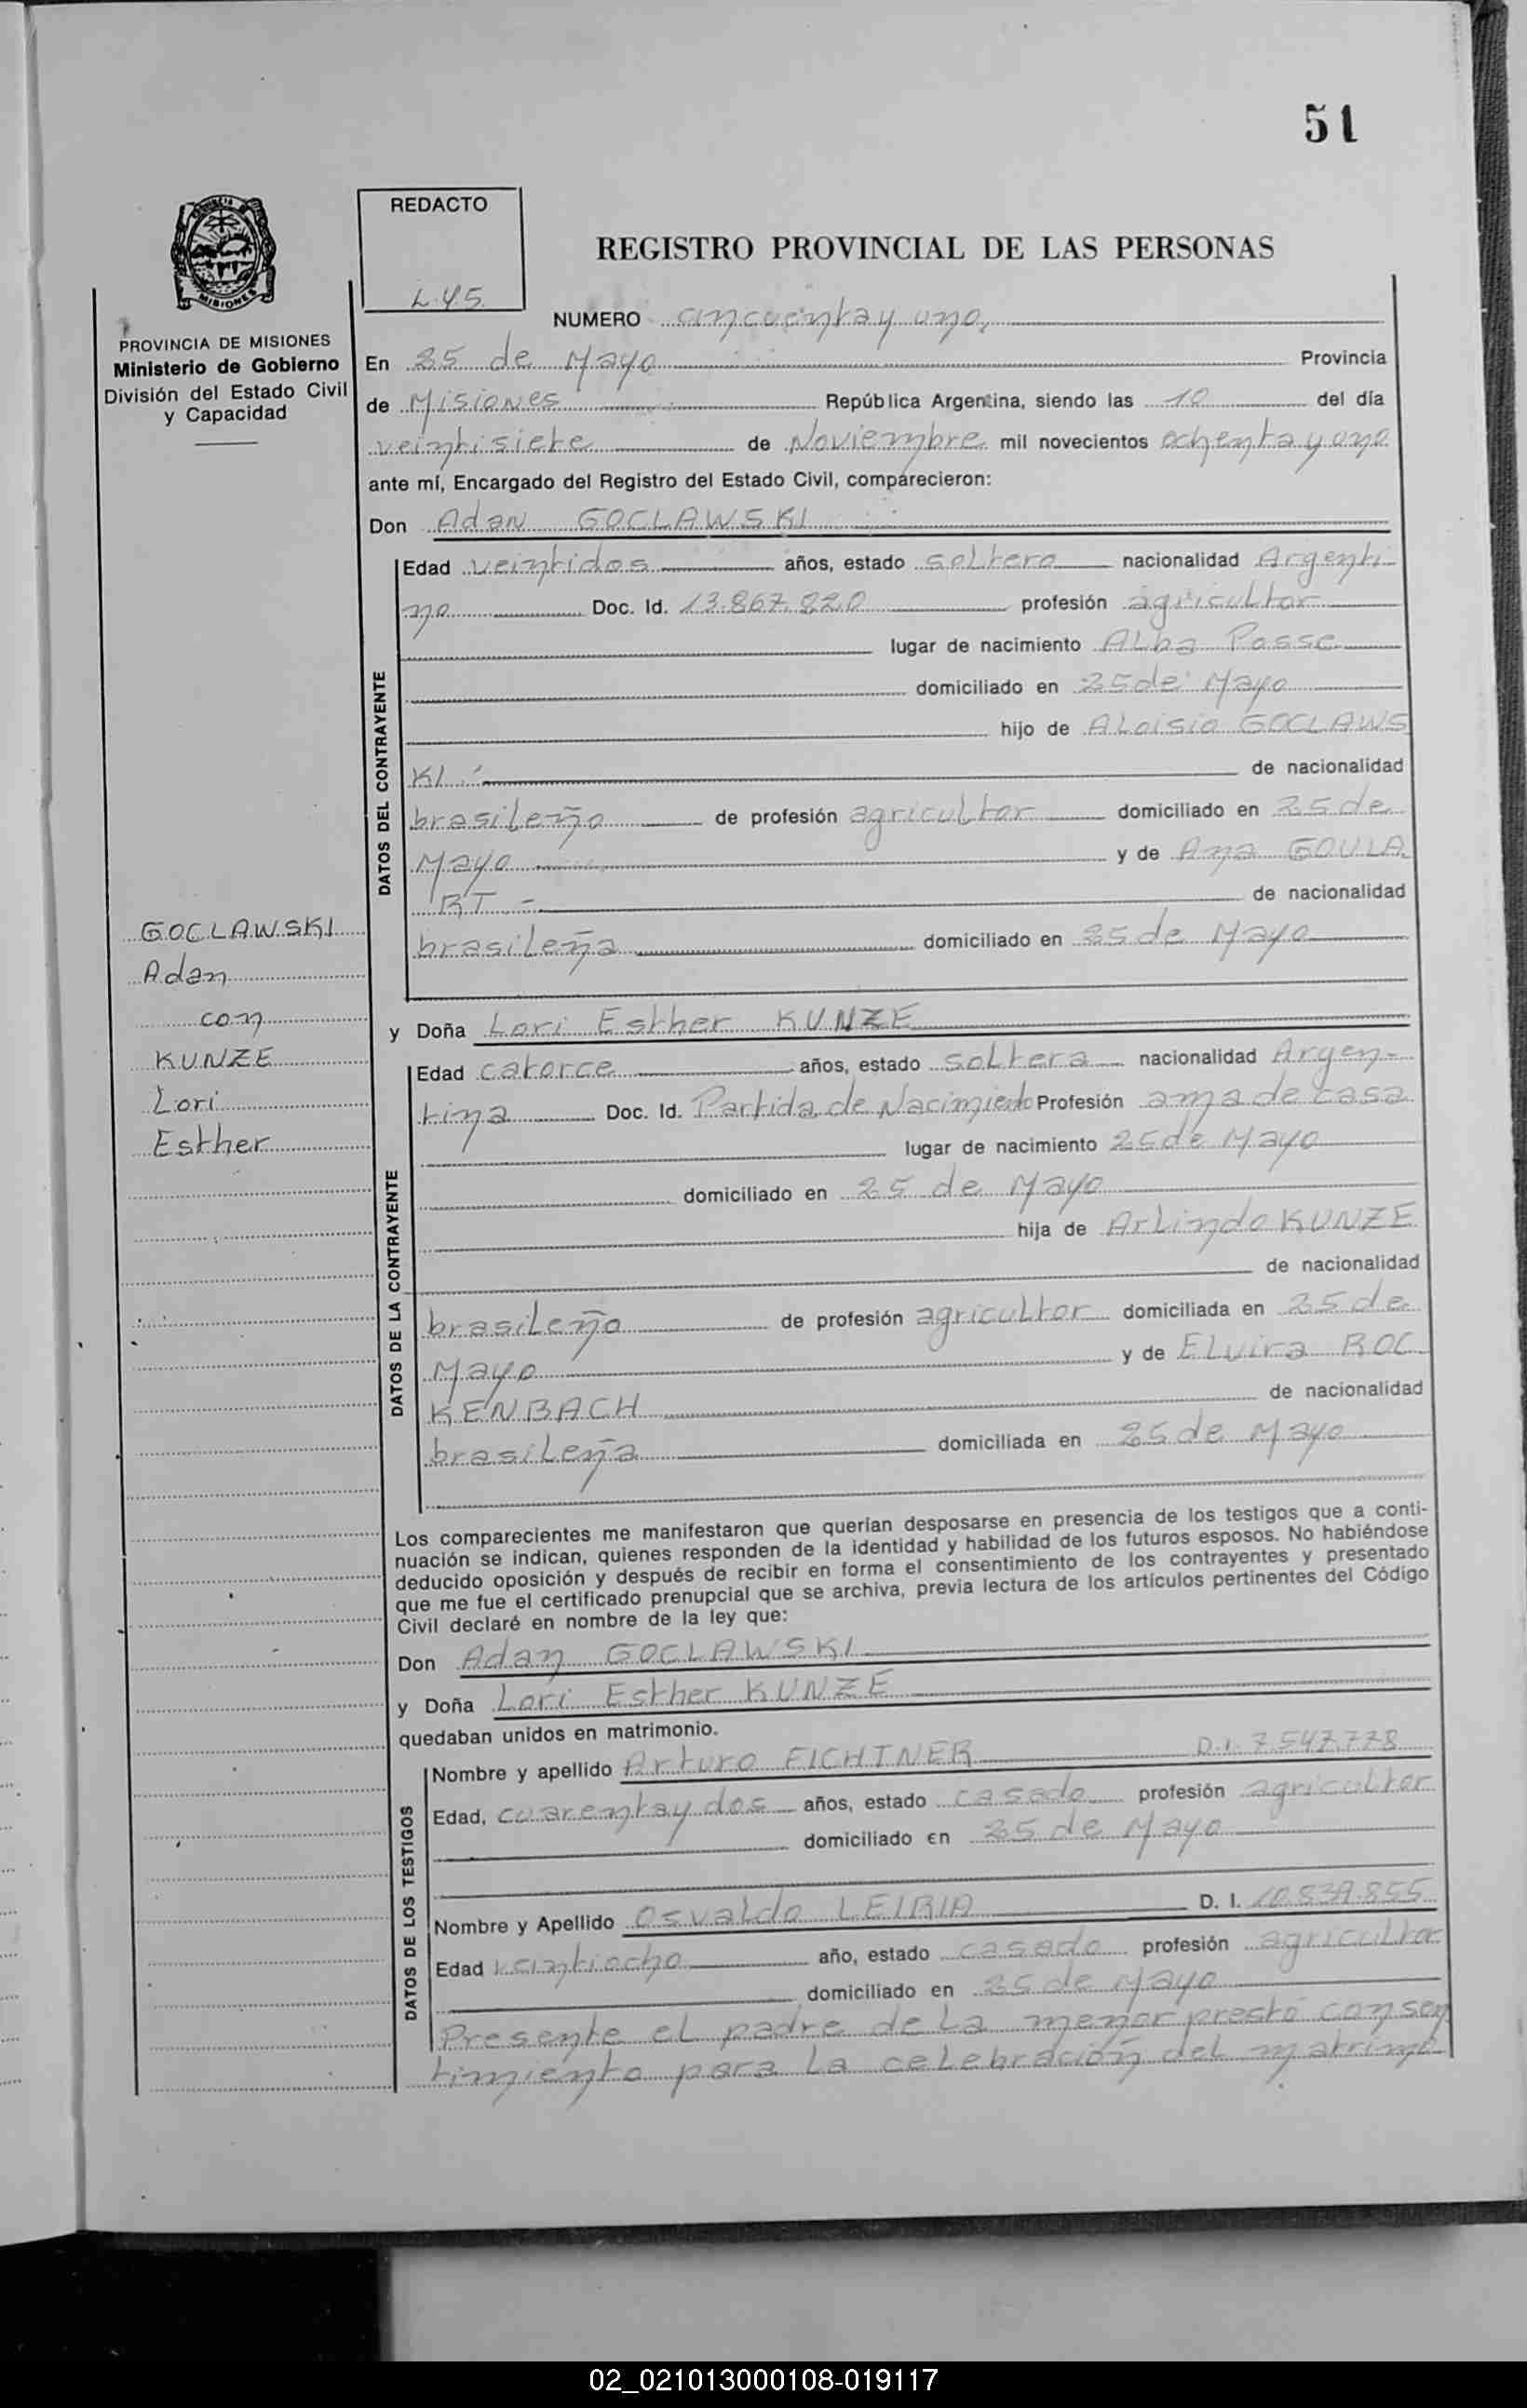 51
REDACTO
L.45.
REGISTRO PROVINCIAL DE LAS PERSONAS
PROVINCIA DE MISIONES
Ministerio de Gobierno
División del Estado Civil
y Capacidad
NUMERO cincuenta y uno.
En 25 de Mayo Provincia
de Misiones República Argentina, siendo las 10 del día
veintisiete de Noviembre mil novecientos ochenta y uno
ante mí, Encargado del Registro del Estado Civil, comparecieron:
Don Adan GOCLAWSKI
DATOS DEL CONTRAYENTE
Edad veintidos años, estado soltero nacionalidad Argenti
no Doc. Id. 13.867.820 profesión agricultor
lugar de nacimiento Alba Posse
domiciliado en 25 de Mayo
hijo de Aloisio GOCLAWS
KI.- de nacionalidad
brasileño de profesión agricultor domiciliado en 25 de
Mayo y de Ana GOULA
RT - de nacionalidad
brasileña domiciliado en 25 de Mayo
GOCLAWSKI
Adan
con
KUNZE
Lori
Esther
y Doña Lori Esther KUNZE
DATOS DE LA CONTRAYENTE
Edad catorce años, estado soltera nacionalidad Argen-
tina Doc. Id. Partida de Nacimiento Profesión ama de casa
lugar de nacimiento 25 de Mayo
domiciliado en 25 de Mayo
hija de Arlindo KUNZE
de nacionalidad
brasileño de profesión agricultor domiciliada en 25 de
Mayo y de Elvira ROC
KENBACH de nacionalidad
brasileña domiciliada en 25 de Mayo
Los comparecientes me manifestaron que querían desposarse en presencia de los testigos que a conti-
nuación se indican, quienes responden de la identidad y habilidad de los futuros esposos. No habiéndose
deducido oposición y después de recibir en forma el consentimiento de los contrayentes y presentado
que me fue el certificado prenupcial que se archiva, previa lectura de los artículos pertinentes del Código
Civil declaré en nombre de la ley que:
Don Adan GOCLAWSKI
y Doña Lori Esther KUNZE
quedaban unidos en matrimonio.
DATOS DE LOS TESTIGOS
Nombre y apellido Arturo FICHTNER D.I. 7.547.778
Edad, cuarenta y dos años, estado casado profesión agricultor
domiciliado en 25 de Mayo
Nombre y Apellido Osvaldo LEIRIA D. I. 10.839.855
Edad veintiocho año, estado casado profesión agricultor
domiciliado en 25 de Mayo
Presente el padre de la menor prestó consen
timiento para la celebración del matrimo
02_021013000108-019117